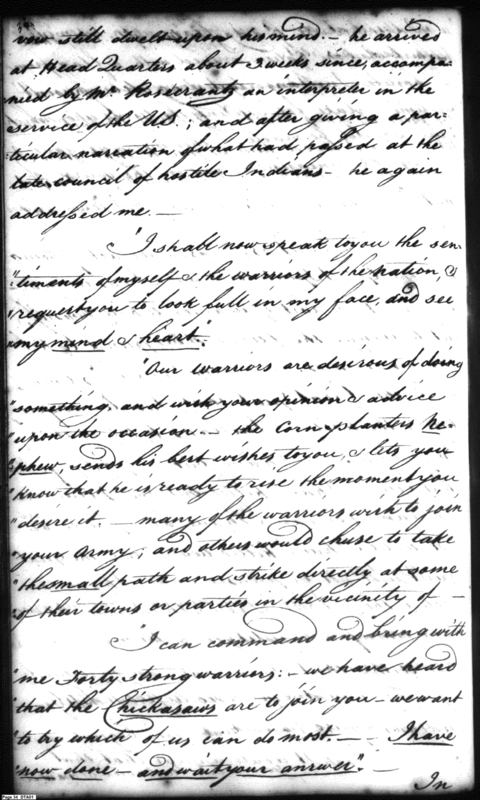 vow still dwelt upon his mind. — he arrived
at Head Quarters about 3 weeks since, accompa-
nied by Mr. Rosecrantz an interpreter in the
service of the U.S.; and after giving a par-
ticular narration of what had passed at the
late council of hostile Indians — he again
addressed me. —
"I shall now speak to you the sen-
"timents of myself & the warriors of the nation, &
"request you to look full in my face, and see
"my mind & heart".
"Our warriors are desirous of doing
"something, and wish your opinion & advice
"upon the occasion — the Cornplanters Ne-
"phew, sends his best wishes to you, & lets you
"know that he is ready to rise the moment you
"desire it. — many of the warriors wish to join
"your Army; and others would chuse to take
"the small path and strike directly at some
"of their towns or parties in the vicinity of —
"I can command and bring with
"me Forty strong warriors: — we have heard
"that the Chickasaws are to join you — we want
"to try which of us can do most. — I have
"now done — and wait your answer". —
In